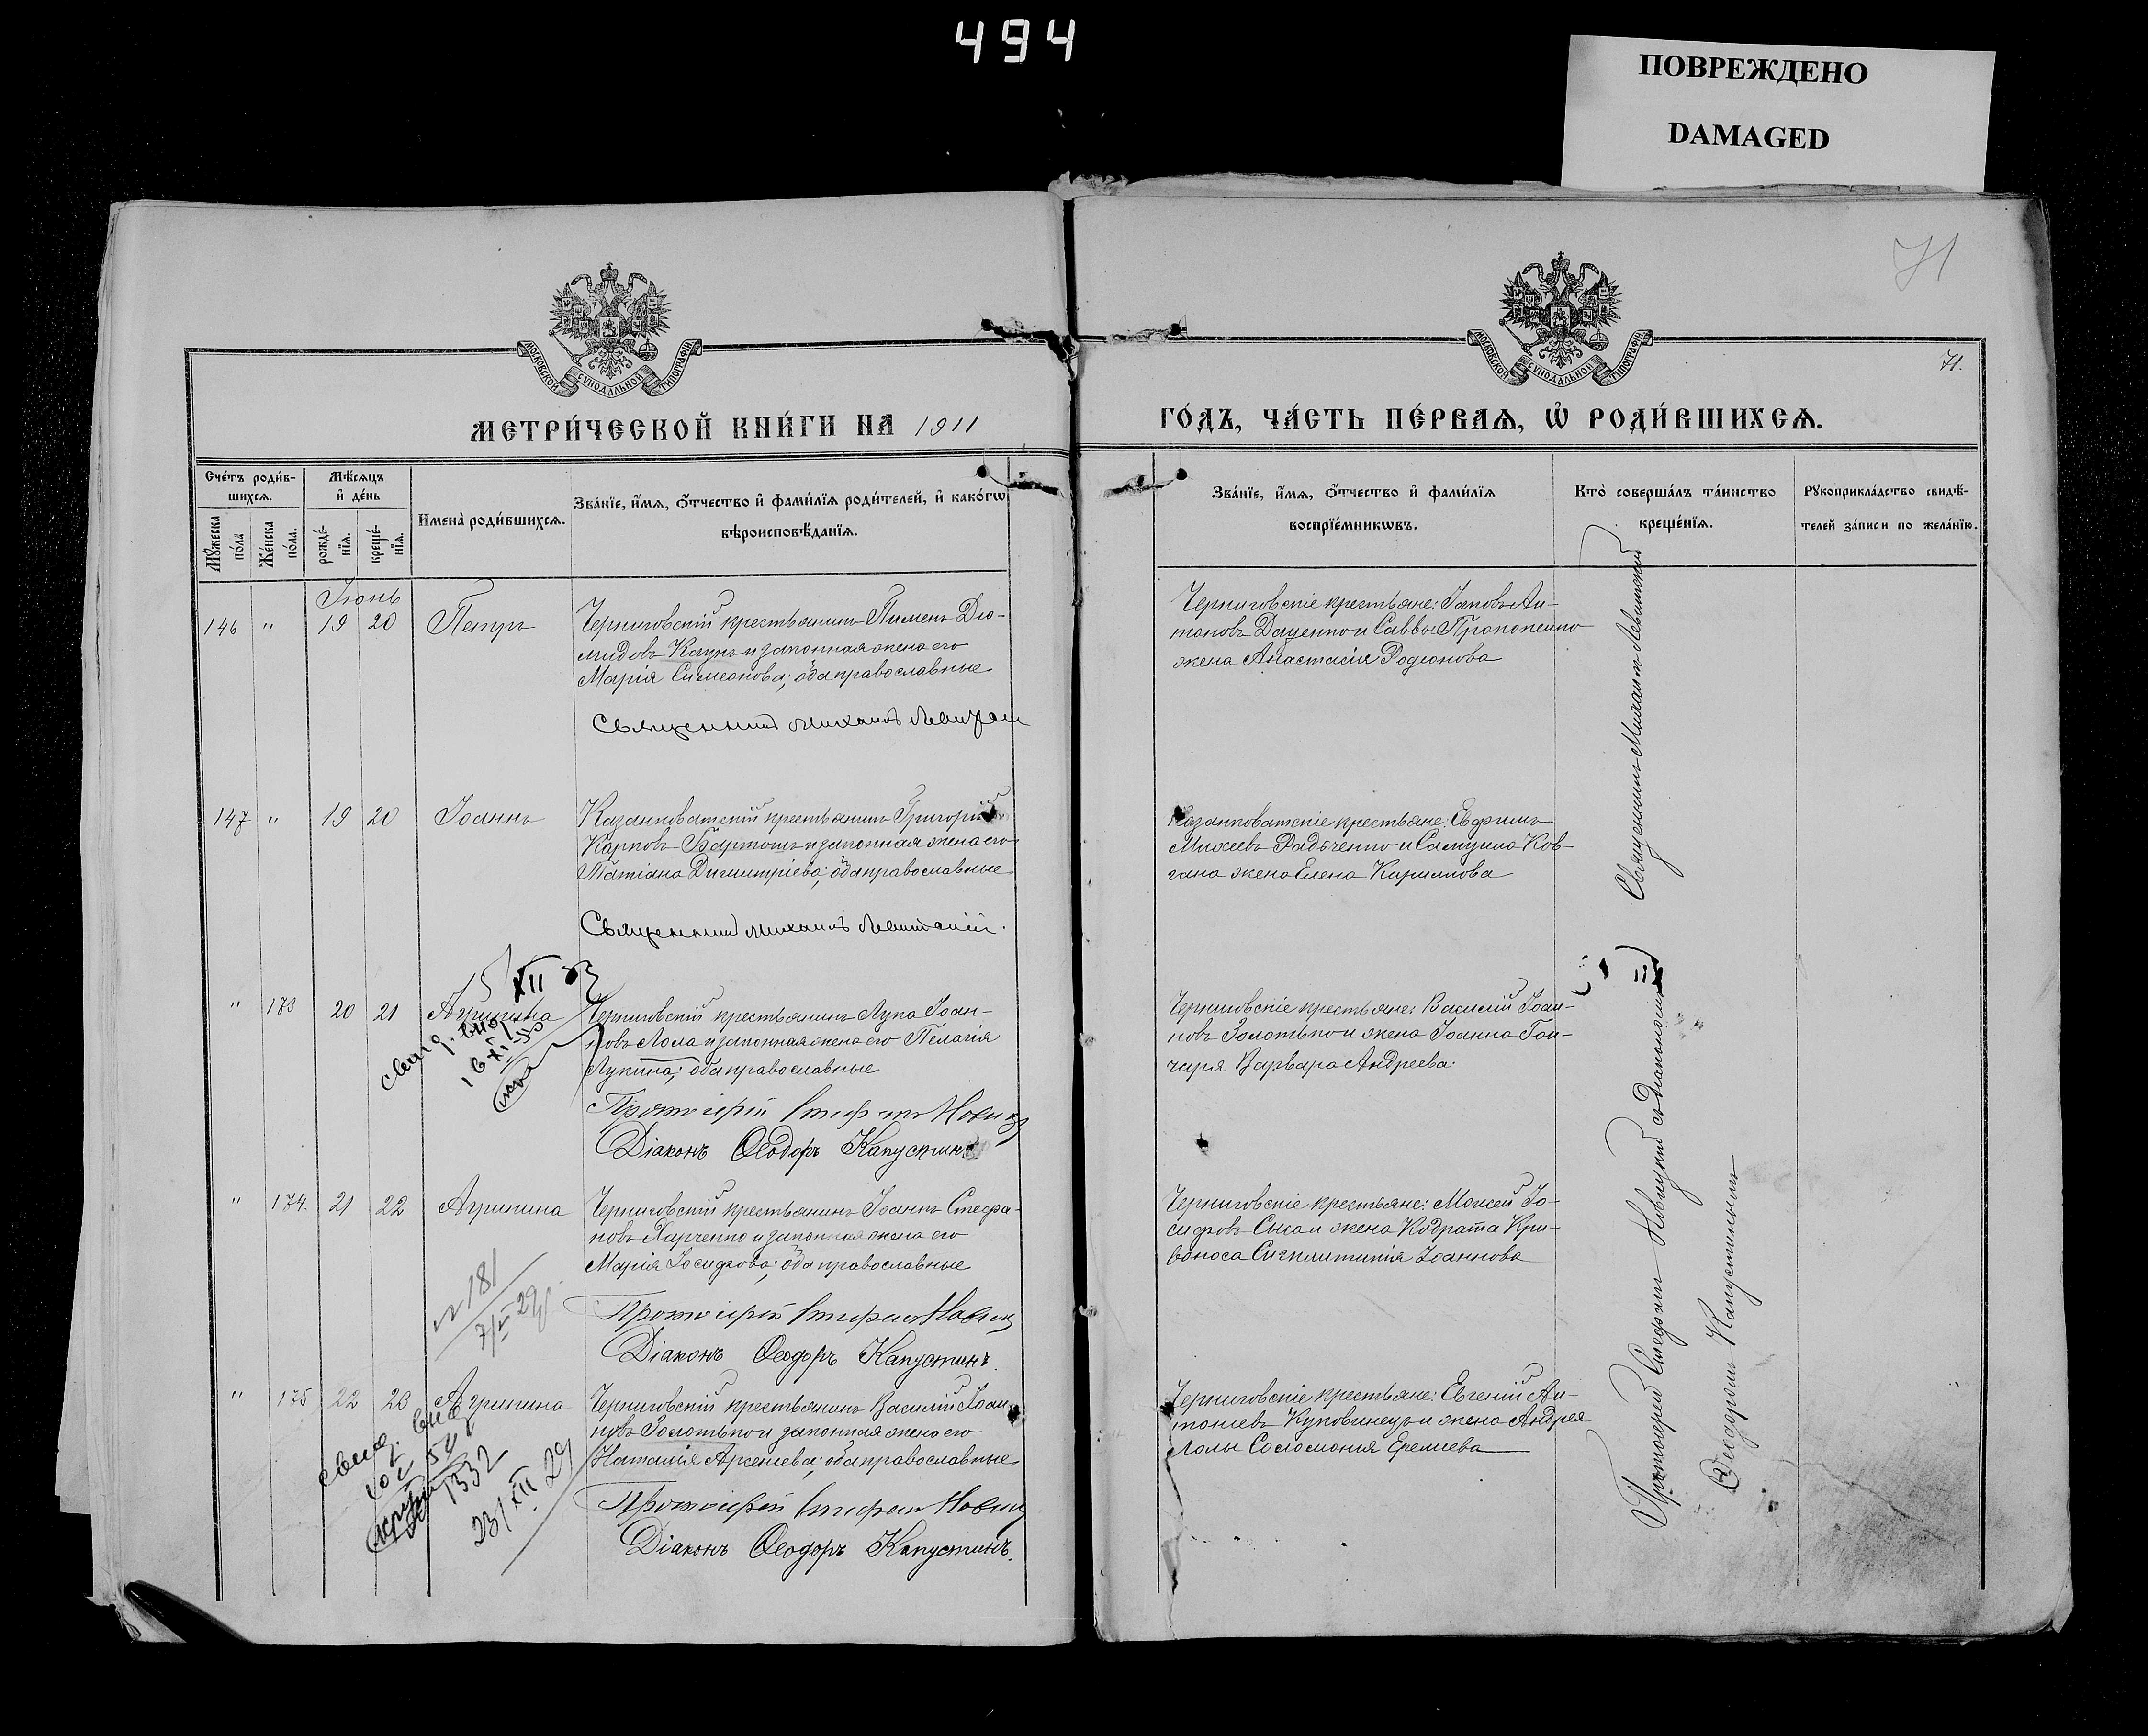 494
ПОВРЕЖДЕНО
DAMAGED
71
МОСКОВСКОЙ СѴНОДАЛЬНОЙ ТИПОГРАФІИ
МОСКОВСКОЙ СѴНОДАЛЬНОЙ ТИПОГРАФІИ
71.
МЕТРИ́ЧЕСКОЙ КНИ́ГИ НА 1911
ГО́ДЪ, ЧА́СТЬ ПЕ́РВАѦ, Ѽ РОДИ́ВШИХСѦ.
Сче́тъ роди́в-
шихсѧ.
Мꙋ́жеска
по́ла
Же́нска
по́ла.
Мѣ́сѧцъ
и҆ де́нь
рожде́-
нїѧ.
креще́-
нїѧ.
И҆мена̀ роди́вшихсѧ.
Зва́нїе, и҆́мѧ, ѻ҆́тчество и҆ фами́лїѧ роди́телей, и҆ како́гѡ
вѣроисповѣ́данїѧ.
Зва́нїе, и҆́мѧ, ѻ҆́тчество и҆ фами́лїѧ
воспрїе́мникѡвъ.
Кто̀ соверша́лъ та́инство
креще́нїѧ.
Рꙋкоприкла́дство свидѣ́-
телей за́писи по жела́нїю.
Іюнь
146 " 19 20 Петръ
Черниговскій крестьянинъ Пименъ Дio-
мидовъ Кацунъ и законная жена его
Марія Симеонова; оба православные
Священникъ Михаилъ Левитскій
Черниговскіе крестьяне: Іаковъ Ан-
тоновъ Даценко и Саввы Прокопенко
жена Анастасія Родіонова
147 " 19 20 Іоаннъ
Казанковатскій крестьянинъ Григорій
Карповъ Бартошъ и законная жена его
Татіана Димитріева; оба православные
Священникъ Михаилъ Левитскій.
Казанковатскіе крестьяне: Евфимъ
Михеевъ Радченко и Самуила Ков-
гана жена Елена Кириллова
Священникъ Михаилъ Левитскій
" 173 20 21 Агрипина
XII
свид. выд.
16 XI
Черниговскій крестьянинъ Лука Іоан-
новъ Лола и законная жена его Пелагія
Лукина; оба православные
Протоіерей Стефанъ Новицкій
Діаконъ Ѳеодоръ Капустинъ
Черниговскіе крестьяне: Василій Іоан-
новъ Золотько и жена Іоанна Гон-
чаря Варвара Андреева.
" 174. 21 22 Агрипина
№ 181
Черниговскій крестьянинъ Іоаннъ Стефа-
новъ Харченко и законная жена его
Марія Іосифова; оба православные
Протоіерей Стефанъ Новицкій
Діаконъ Ѳеодоръ Капустинъ.
Черниговскіе крестьяне: Моисей Іо-
сифовъ Сыса и жена Кодрата Кри-
воноса Сигклитикія Іоаннова
" 175 22 23 Агрипина
свид. выд.
1332
23/XII 29
Черниговскій крестьянинъ Василій Іоан-
новъ Золотько и законная жена его
Наталія Арсеніева; оба православные
Протоіерей Стефанъ Новицкій
Діаконъ Ѳеодоръ Капустинъ.
Черниговскіе крестьяне: Евгеній Ан-
тоніевъ Куковинецъ и жена Андрея
Лолы Соломонія Еремеева
Протоіерей Стефанъ Новицкій съ Діакономъ
Ѳеодоромъ Капустинымъ